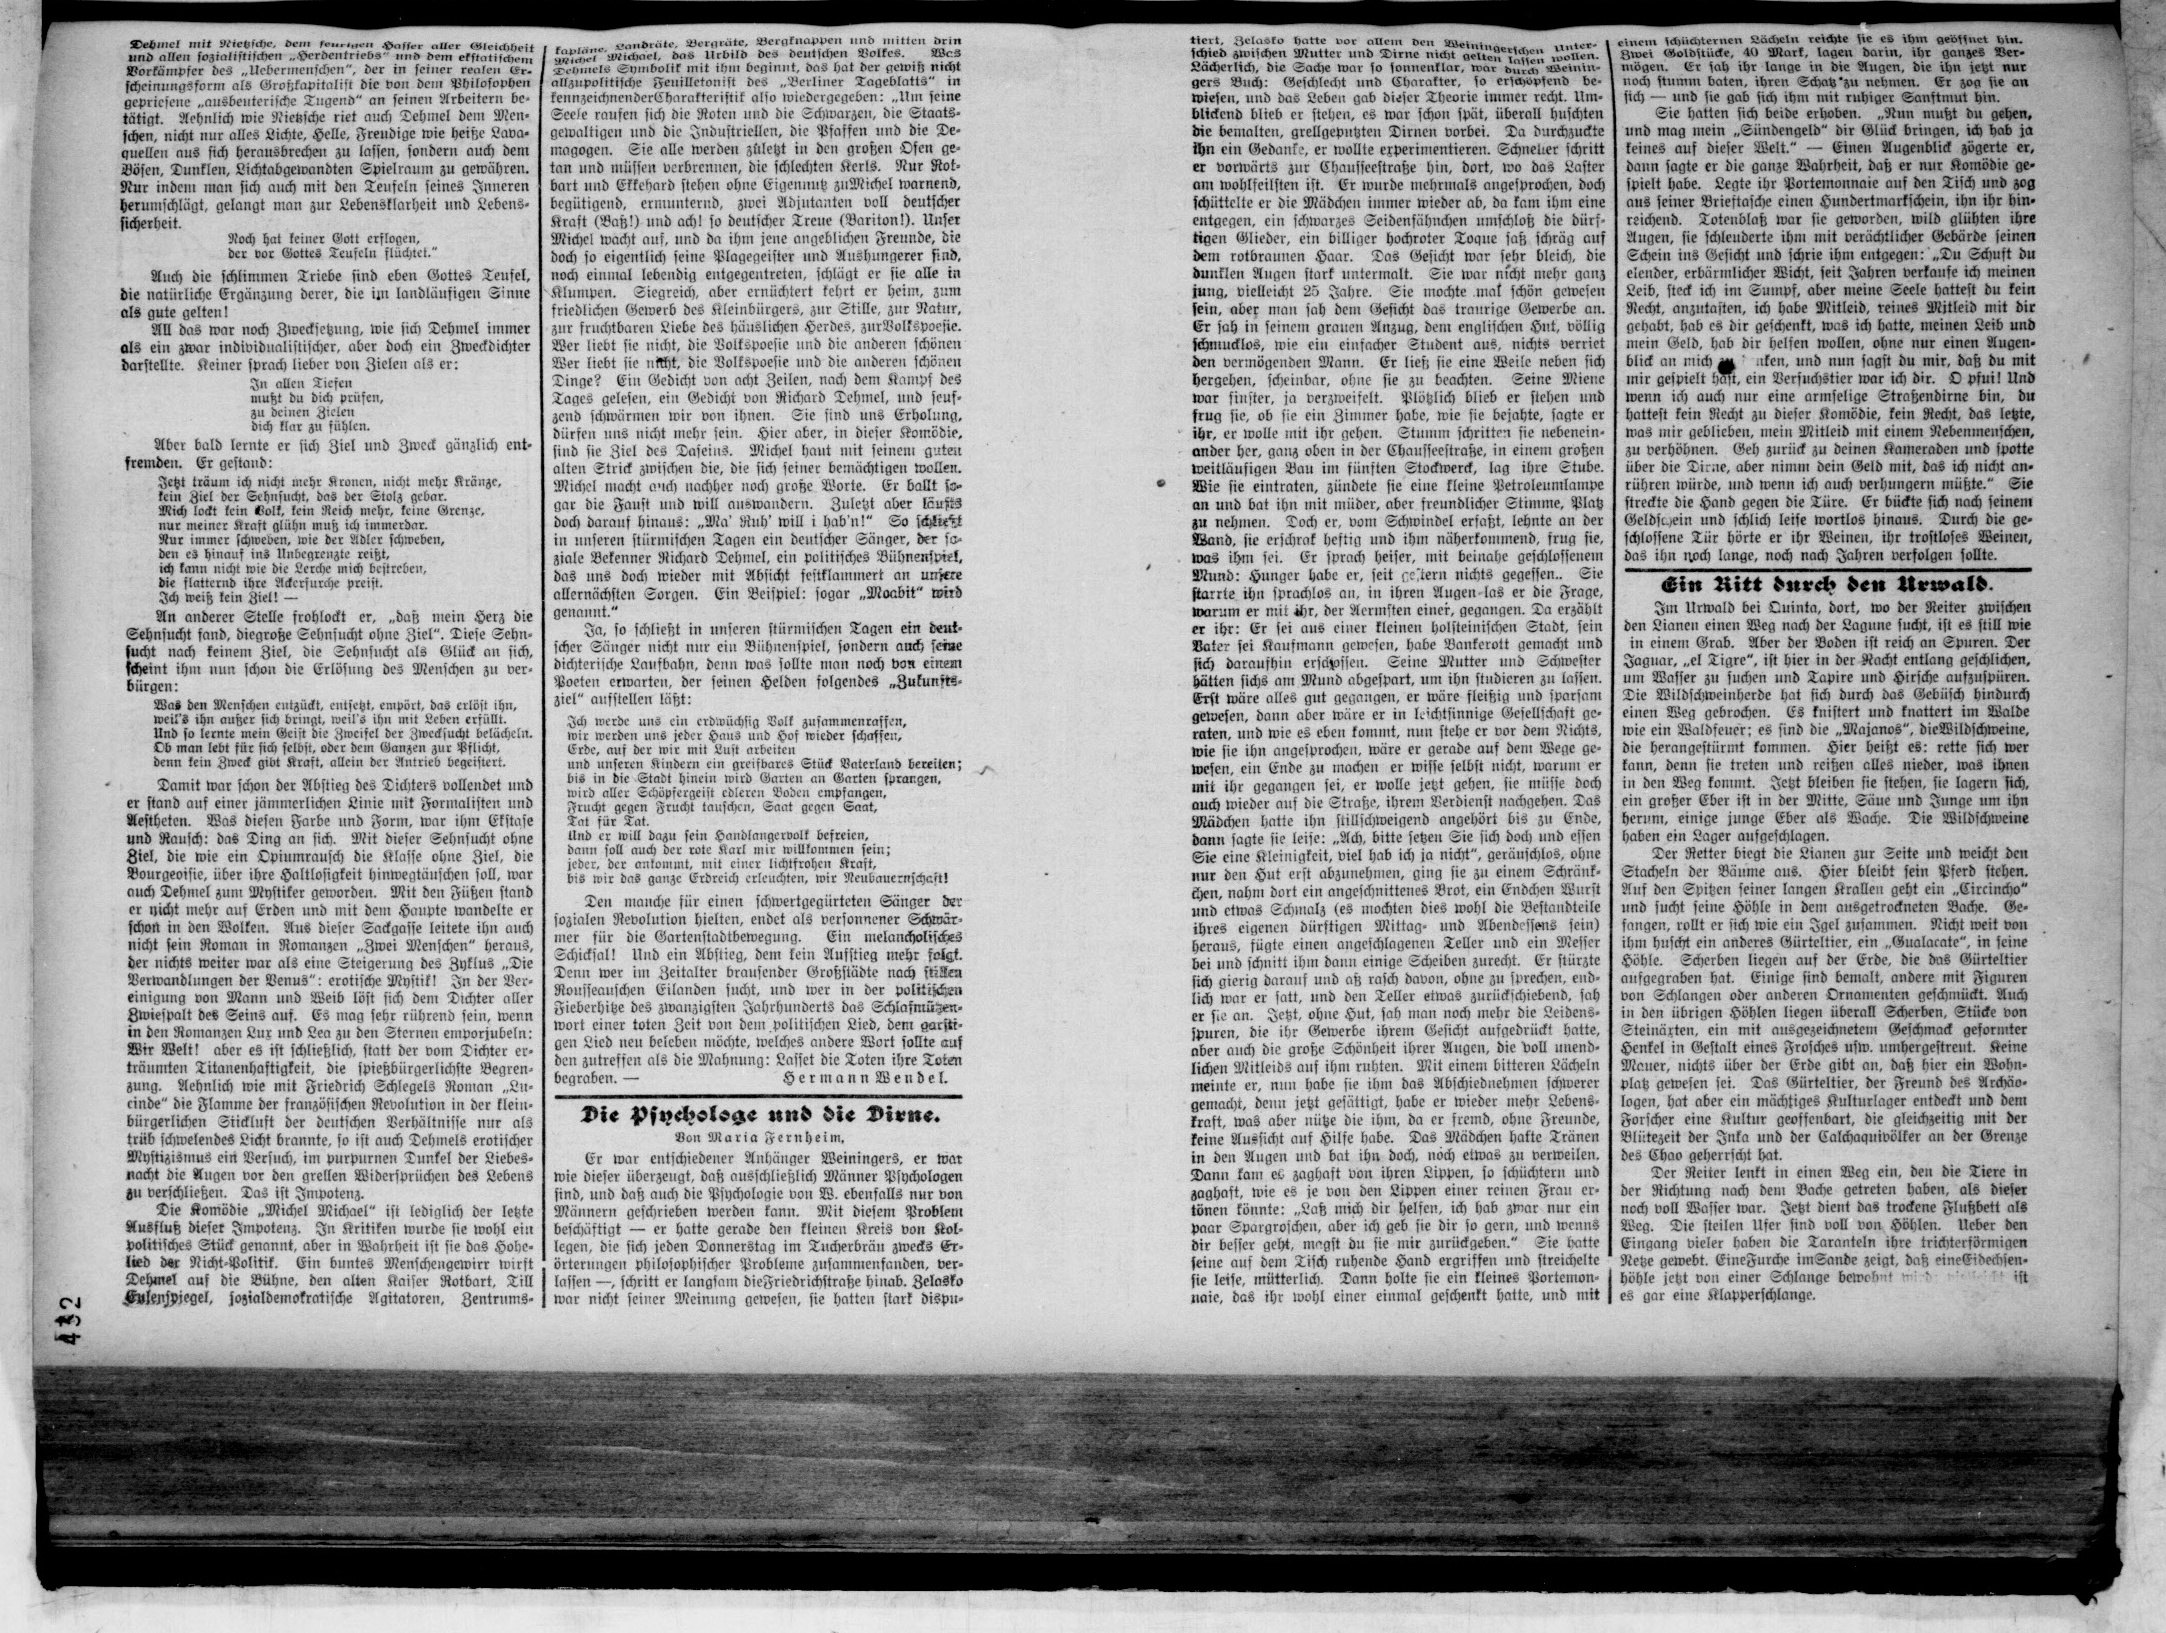 Dehmel mit Nietzsche, dem feurigen Hasser aller Gleichheit
und allen sozialistischen „Herdentriebs“ und dem ekstatischem
Vorkämpfer des „Uebermenschen“, der in seiner realen Er-
scheinungsform als Großkapitalist die von dem Philosophen
gepriesene „ausbeuterische Tugend“ an seinen Arbeitern be-
tätigt. Aehnlich wie Nietzsche riet auch Dehmel dem Men-
schen, nicht nur alles Lichte, Helle, Freudige wie heiße Lava-
quellen aus sich herausbrechen zu lassen, sondern auch dem
Bösen, Dunklen, Lichtabgewandten Spielraum zu gewähren.
Nur indem man sich auch mit den Teufeln seines Inneren
herumschlägt, gelangt man zur Lebensklarheit und Lebens-
sicherheit.
Noch hat keiner Gott erflogen,
der vor Gottes Teufeln flüchtet.“
Auch die schlimmen Triebe sind eben Gottes Teufel,
die natürliche Ergänzung derer, die im landläufigen Sinne
als gute gelten!
All das war noch Zwecksetzung, wie sich Dehmel immer
als ein zwar individualistischer, aber doch ein Zweckdichter
darstellte. Keiner sprach lieber von Zielen als er:
In allen Tiefen
mußt du dich prüfen,
zu deinen Zielen
dich klar zu fühlen.
Aber bald lernte er sich Ziel und Zweck gänzlich ent-
fremden. Er gestand:
Jetzt träum ich nicht mehr Kronen, nicht mehr Kränze,
kein Ziel der Sehnsucht, das der Stolz gebar.
Mich lockt kein Volk, kein Reich mehr, keine Grenze,
nur meiner Kraft glühn muß ich immerdar.
Nur immer schweben, wie der Adler schweben,
den es hinauf ins Unbegrenzte reißt,
ich kann nicht wie die Lerche mich bestreben,
die flatternd ihre Ackerfurche preist.
Ich weiß kein Ziel! —
An anderer Stelle frohlockt er, „daß mein Herz die
Sehnsucht fand, diegroße Sehnsucht ohne Ziel“. Diese Sehn-
sucht nach keinem Ziel, die Sehnsucht als Glück an sich,
scheint ihm nun schon die Erlösung des Menschen zu ver-
bürgen:
Was den Menschen entzückt, entsetzt, empört, das erlöst ihn,
weil's ihn außer sich bringt, weil's ihn mit Leben erfüllt.
Und so lernte mein Geist die Zweifel der Zwecksucht belächeln.
Ob man lebt für sich selbst, oder dem Ganzen zur Pflicht,
denn kein Zweck gibt Kraft, allein der Antrieb begeistert.
Damit war schon der Abstieg des Dichters vollendet und
er stand auf einer jämmerlichen Linie mit Formalisten und
Aestheten. Was diesen Farbe und Form, war ihm Ekstase
und Rausch: das Ding an sich. Mit dieser Sehnsucht ohne
Ziel, die wie ein Opiumrausch die Klasse ohne Ziel, die
Bourgeoisie, über ihre Haltlosigkeit hinwegtäuschen soll, war
auch Dehmel zum Mystiker geworden. Mit den Füßen stand
er nicht mehr auf Erden und mit dem Haupte wandelte er
schon in den Wolken. Aus dieser Sackgasse leitete ihn auch
nicht sein Roman in Romanzen „Zwei Menschen“ heraus,
der nichts weiter war als eine Steigerung des Zyklus „Die
Verwandlungen der Venus“: erotische Mystik! In der Ver-
einigung von Mann und Weib löst sich dem Dichter aller
Zwiespalt des Seins auf. Es mag sehr rührend sein, wenn
in den Romanzen Lux und Lea zu den Sternen emporjubeln:
Wir Welt! aber es ist schließlich, statt der vom Dichter er-
träumten Titanenhaftigkeit, die spießbürgerlichste Begren-
zung. Aehnlich wie mit Friedrich Schlegels Roman „Lu-
cinde“ die Flamme der französischen Revolution in der klein-
bürgerlichen Stickluft der deutschen Verhältnisse nur als
trüb schwelendes Licht brannte, so ist auch Dehmels erotischer
Mystizismus ein Versuch, im purpurnen Dunkel der Liebes-
nacht die Augen vor den grellen Widersprüchen des Lebens
zu verschließen. Das ist Impotenz.
Die Komödie „Michel Michael“ ist lediglich der letzte
Ausfluß dieser Impotenz. In Kritiken wurde sie wohl ein
politisches Stück genannt, aber in Wahrheit ist sie das Hohe-
lied der Nicht-Politik. Ein buntes Menschengewirr wirft
Dehmel auf die Bühne, den alten Kaiser Rotbart, Till
Eulenspiegel, sozialdemokratische Agitatoren, Zentrums-
kapläne, Landräte, Bergräte, Bergknappen und mitten drin
Michel Michael, das Urbild des deutschen Volkes. Wes
Dehmels Symbolik mit ihm beginnt, das hat der gewiß nicht
allzupolitische Feuilletonist des „Berliner Tageblatts“ in
kennzeichnenderCharakteristik also wiedergegeben: „Um seine
Seele raufen sich die Roten und die Schwarzen, die Staats-
gewaltigen und die Industriellen, die Pfaffen und die De-
magogen. Sie alle werden zuletzt in den großen Ofen ge-
tan und müssen verbrennen, die schlechten Kerls. Nur Rot-
bart und Ekkehard stehen ohne Eigennutz zuMichel warnend,
begütigend, ermunternd, zwei Adjutanten voll deutscher
Kraft (Baß!) und ach! so deutscher Treue (Bariton!). Unser
Michel wacht auf, und da ihm jene angeblichen Freunde, die
doch so eigentlich seine Plagegeister und Aushungerer sind,
noch einmal lebendig entgegentreten, schlägt er sie alle in
Klumpen. Siegreich, aber ernüchtert kehrt er heim, zum
friedlichen Gewerb des Kleinbürgers, zur Stille, zur Natur,
zur fruchtbaren Liebe des häuslichen Herdes, zurVolkspoesie.
Wer liebt sie nicht, die Volkspoesie und die anderen schönen
Wer liebt sie nicht, die Volkspoesie und die anderen schönen
Dinge? Ein Gedicht von acht Zeilen, nach dem Kampf des
Tages gelesen, ein Gedicht von Richard Dehmel, und seuf-
zend schwärmen wir von ihnen. Sie sind uns Erholung,
dürfen uns nicht mehr sein. Hier aber, in dieser Komödie,
sind sie Ziel des Daseins. Michel haut mit seinem guten
alten Strick zwischen die, die sich seiner bemächtigen wollen.
Michel macht auch nachher noch große Worte. Er ballt so-
gar die Faust und will auswandern. Zuletzt aber läufts
doch darauf hinaus: „Ma' Ruh' will i hab'n!“ So schließt
in unseren stürmischen Tagen ein deutscher Sänger, der so-
ziale Bekenner Richard Dehmel, ein politisches Bühnenspiel,
das uns doch wieder mit Absicht festklammert an unsere
allernächsten Sorgen. Ein Beispiel: sogar „Moabit“ wird
genannt.“
Ja, so schließt in unseren stürmischen Tagen ein deut-
scher Sänger nicht nur ein Bühnenspiel, sondern auch seine
dichterische Laufbahn, denn was sollte man noch von einem
Poeten erwarten, der seinen Helden folgendes „Zukunfts-
ziel“ aufstellen läßt:
Ich werde uns ein erdwüchsig Volk zusammenraffen,
wir werden uns jeder Haus und Hof wieder schaffen,
Erde, auf der wir mit Lust arbeiten
und unseren Kindern ein greifbares Stück Vaterland bereiten;
bis in die Stadt hinein wird Garten an Garten sprangen,
wird aller Schöpfergeist edleren Boden empfangen,
Frucht gegen Frucht tauschen, Saat gegen Saat,
Tat für Tat.
Und er will dazu sein Handlangervolk befreien,
dann soll auch der rote Karl mir willkommen sein;
jeder, der ankommt, mit einer lichtfrohen Kraft,
bis wir das ganze Erdreich erleuchten, wir Neubauernschaft!
Den manche für einen schwertgegürteten Sänger der
sozialen Revolution hielten, endet als versonnener Schwär-
mer für die Gartenstadtbewegung. Ein melancholisches
Schicksal! Und ein Abstieg, dem kein Aufstieg mehr folgt.
Denn wer im Zeitalter brausender Großstädte nach stillen
Rousseauschen Eilanden sucht, und wer in der politischen
Fieberhitze des zwanzigsten Jahrhunderts das Schlafmützen-
wort einer toten Zeit von dem politischen Lied, dem garsti-
gen Lied neu beleben möchte, welches andere Wort sollte auf
den zutreffen als die Mahnung: Lasset die Toten ihre Toten
begraben. — Hermann Wendel.
Die Psychologe und die Dirne.
Von Maria Fernheim.
Er war entschiedener Anhänger Weiningers, er war
wie dieser überzeugt, daß ausschließlich Männer Psychologen
sind, und daß auch die Psychologie von W. ebenfalls nur von
Männern geschrieben werden kann. Mit diesem Problem
beschäftigt — er hatte gerade den kleinen Kreis von Kol-
legen, die sich jeden Donnerstag im Tucherbräu zwecks Er-
örterungen philosophischer Probleme zusammenfanden, ver-
lassen —, schritt er langsam dieFriedrichstraße hinab. Zelasko
war nicht seiner Meinung gewesen, sie hatten stark dispu-
tiert, Zelasko hatte vor allem den Weiningerschen Unter-
schied zwischen Mutter und Dirne nicht gelten lassen wollen.
Lächerlich, die Sache war so sonnenklar, war durch Weinin-
gers Buch: Geschlecht und Charakter, so erschöpfend be-
wiesen, und das Leben gab dieser Theorie immer recht. Um-
blickend blieb er stehen, es war schon spät, überall huschten
die bemalten, grellgeputzten Dirnen vorbei. Da durchzuckte
ihn ein Gedanke, er wollte experimentieren. Schneller schritt
er vorwärts zur Chausseestraße hin, dort, wo das Laster
am wohlfeilsten ist. Er wurde mehrmals angesprochen, doch
schüttelte er die Mädchen immer wieder ab, da kam ihm eine
entgegen, ein schwarzes Seidenfähnchen umschloß die dürf-
tigen Glieder, ein billiger hochroter Toque saß schräg auf
dem rotbraunen Haar. Das Gesicht war sehr bleich, die
dunklen Augen stark untermalt. Sie war nicht mehr ganz
jung, vielleicht 25 Jahre. Sie mochte mal schön gewesen
sein, aber man sah dem Gesicht das traurige Gewerbe an.
Er sah in seinem grauen Anzug, dem englischen Hut, völlig
schmucklos, wie ein einfacher Student aus, nichts verriet
den vermögenden Mann. Er ließ sie eine Weile neben sich
hergehen, scheinbar, ohne sie zu beachten. Seine Miene
war finster, ja verzweifelt. Plötzlich blieb er stehen und
frug sie, ob sie ein Zimmer habe, wie sie bejahte, sagte er
ihr, er wolle mit ihr gehen. Stumm schritten sie nebenein-
ander her, ganz oben in der Chausseestraße, in einem großen
weitläufigen Bau im fünften Stockwerck, lag ihre Stube.
Wie sie eintraten, zündete sie eine kleine Petroleumlampe
an und bat ihn mit müder, aber freundlicher Stimme, Platz
zu nehmen. Doch er, vom Schwindel erfaßt, lehnte an der
Wand, sie erschrak heftig und ihm näherkommend, frug sie,
was ihm sei. Er sprach heiser, mit beinahe geschlossenem
Mund: Hunger habe er, seit gestern nichts gegessen.. Sie
starrte ihn sprachlos an, in ihren Augen las er die Frage,
warum er mit ihr, der Aermsten einer, gegangen. Da erzählt
er ihr: Er sei aus einer kleinen holsteinischen Stadt, sein
Vater sei Kaufmann gewesen, habe Bankerott gemacht und
sich daraufhin erschossen. Seine Mutter und Schwester
hätten sichs am Mund abgespart, um ihn studieren zu lassen.
Erst wäre alles gut gegangen, er wäre fleißig und sparsam
gewesen, dann aber wäre er in leichtsinnige Gesellschaft ge-
raten, und wie es eben kommt, nun stehe er vor dem Nichts,
wie sie ihn angesprochen, wäre er gerade auf dem Wege ge-
wesen, ein Ende zu machen er wisse selbst nicht, warum er
mit ihr gegangen sei, er wolle jetzt gehen, sie müsse doch
auch wieder auf die Straße, ihrem Verdienst nachgehen. Das
Mädchen hatte ihn stillschweigend angehört bis zu Ende,
dann sagte sie leise: „Ach, bitte setzen Sie sich doch und essen
Sie eine Kleinigkeit, viel hab ich ja nicht“, geräuschlos, ohne
nur den Hut erst abzunehmen, ging sie zu einem Schränk-
chen, nahm dort ein angeschnittenes Brot, ein Endchen Wurst
und etwas Schmalz (es mochten dies wohl die Bestandteile
ihres eigenen dürftigen Mittag- und Abendessens sein)
heraus, fügte einen angeschlagenen Teller und ein Messer
bei und schnitt ihm dann einige Scheiben zurecht. Er stürzte
sich gierig darauf und aß rasch davon, ohne zu sprechen, end-
lich war er satt, und den Teller etwas zurückschiebend, sah
er sie an. Jetzt, ohne Hut, sah man noch mehr die Leidens-
spuren, die ihr Gewerbe ihrem Gesicht aufgedrückt hatte,
aber auch die große Schönheit ihrer Augen, die voll unend-
lichen Mitleids auf ihm ruhten. Mit einem bitteren Lächeln
meinte er, nun habe sie ihm das Abschiednehmen schwerer
gemacht, denn jetzt gesättigt, habe er wieder mehr Lebens-
kraft, was aber nütze die ihm, da er fremd, ohne Freunde,
keine Aussicht auf Hilfe habe. Das Mädchen hatte Tränen
in den Augen und bat ihn doch, noch etwas zu verweilen.
Dann kam es zaghaft von ihren Lippen, so schüchtern und
zaghaft, wie es je von den Lippen einer reinen Frau er-
tönen könnte: „Laß mich dir helfen, ich hab zwar nur ein
paar Spargroschen, aber ich geb sie dir so gern, und wenns
dir besser geht, magst du sie mir zurückgeben.“ Sie hatte
seine auf dem Tisch ruhende Hand ergriffen und streichelte
sie leise, mütterlich. Dann holte sie ein kleines Portemon-
naie, das ihr wohl einer einmal geschenkt hatte, und mit
einem schüchternen Lächeln reichte sie es ihm geöffnet hin.
Zwei Goldstücke, 40 Mark, lagen darin, ihr ganzes Ver-
mögen. Er sah ihr lange in die Augen, die ihn jetzt nur
noch stumm baten, ihren Schatz zu nehmen. Er zog sie an
sich — und sie gab sich ihm mit ruhiger Sanftmut hin.
Sie hatten sich beide erhoben. „Nun mußt du gehen,
und mag mein „Sündengeld“ dir Glück bringen, ich hab ja
keines auf dieser Welt.“ — Einen Augenblick zögerte er,
dann sagte er die ganze Wahrheit, daß er nur Komödie ge-
spielt habe. Legte ihr Portemonnaie auf den Tisch und zog
aus seiner Brieftasche einen Hundertmarkschein, ihn ihr hin-
reichend. Totenblaß war sie geworden, wild glühten ihre
Augen, sie schleuderte ihm mit verächtlicher Gebärde seinen
Schein ins Gesicht und schrie ihm entgegen: „Du Schuft du
elender, erbärmlicher Wicht, seit Jahren verkaufe ich meinen
Leib, steck ich im Sumpf, aber meine Seele hattest du kein
Recht, anzutasten, ich habe Mitleid, reines Mitleid mit dir
gehabt, hab es dir geschenkt, was ich hatte, meinen Leib und
mein Geld, hab dir helfen wollen, ohne nur einen Augen-
blick an mich zu nken, und nun sagst du mir, daß du mit
mir gespielt hast, ein Versuchstier war ich dir. O pfui! Und
wenn ich auch nur eine armselige Straßendirne bin, du
hattest kein Recht zu dieser Komödie, kein Recht, das letzte,
was mir geblieben, mein Mitleid mit einem Nebenmenschen,
zu verhöhnen. Geh zurück zu deinen Kameraden und spotte
über die Dirne, aber nimm dein Geld mit, das ich nicht an-
rühren würde, und wenn ich auch verhungern müßte.“ Sie
streckte die Hand gegen die Türe. Er bückte sich nach seinem
Geldschein und schlich leise wortlos hinaus. Durch die ge-
schlossene Tür hörte er ihr Weinen, ihr trostloses Weinen,
das ihn noch lange, noch nach Jahren verfolgen sollte.
Ein Ritt durch den Urwald.
Im Urwald bei Quinta, dort, wo der Reiter zwischen
den Lianen einen Weg nach der Lagune sucht, ist es still wie
in einem Grab. Aber der Boden ist reich an Spuren. Der
Jaguar, „el Tigre“, ist hier in der Nacht entlang geschlichen,
um Wasser zu suchen und Tapire und Hirsche aufzuspüren.
Die Wildschweinherde hat sich durch das Gebüsch hindurch
einen Weg gebrochen. Es knistert und knattert im Walde
wie ein Waldfeuer; es sind die „Majanos“, dieWildschweine,
die herangestürmt kommen. Hier heißt es: rette sich wer
kann, denn sie treten und reißen alles nieder, was ihnen
in den Weg kommt. Jetzt bleiben sie stehen, sie lagern sich,
ein großer Eber ist in der Mitte, Säue und Junge um ihn
herum, einige junge Eber als Wache. Die Wildschweine
haben ein Lager aufgeschlagen.
Der Retter biegt die Lianen zur Seite und weicht den
Stacheln der Bäume aus. Hier bleibt sein Pferd stehen.
Auf den Spitzen seiner langen Krallen geht ein „Circincho“
und sucht seine Höhle in dem ausgetrockneten Bache. Ge-
fangen, rollt er sich wie ein Igel zusammen. Nicht weit von
ihm huscht ein anderes Gürteltier, ein „Gualacate“, in seine
Höhle. Scherben liegen auf der Erde, die das Gürteltier
aufgegraben hat. Einige sind bemalt, andere mit Figuren
von Schlangen oder anderen Ornamenten geschmückt. Auch
in den übrigen Höhlen liegen überall Scherben, Stücke von
Steinäxten, ein mit ausgezeichnetem Geschmack geformter
Henkel in Gestalt eines Frosches usw. umhergestreut. Keine
Mauer, nichts über der Erde gibt an, daß hier ein Wohn-
platz gewesen sei. Das Gürteltier, der Freund des Archäo-
logen, hat aber ein mächtiges Kulturlager entdeckt und dem
Forscher eine Kultur geoffenbart, die gleichzeitig mit der
Blütezeit der Inka und der Calchaquivölker an der Grenze
des Chao geherrscht hat.
Der Reiter lenkt in einen Weg ein, den die Tiere in
der Richtung nach dem Bache getreten haben, als dieser
noch voll Wasser war. Jetzt dient das trockene Flußbett als
Weg. Die steilen Ufer sind voll von Höhlen. Ueber den
Eingang vieler haben die Taranteln ihre trichterförmigen
Netze gewebt. EineFurche imSande zeigt, daß eineEidechsen-
höhle jetzt von einer Schlange bewohnt wird vielleicht ist
es gar eine Klapperschlange.
432